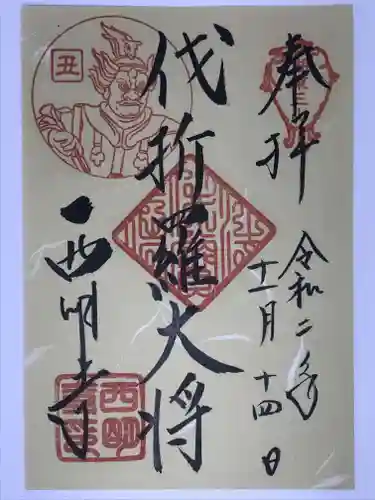 奉拝
令和二年
十一月十四日
伐折羅大将
西明寺
丑